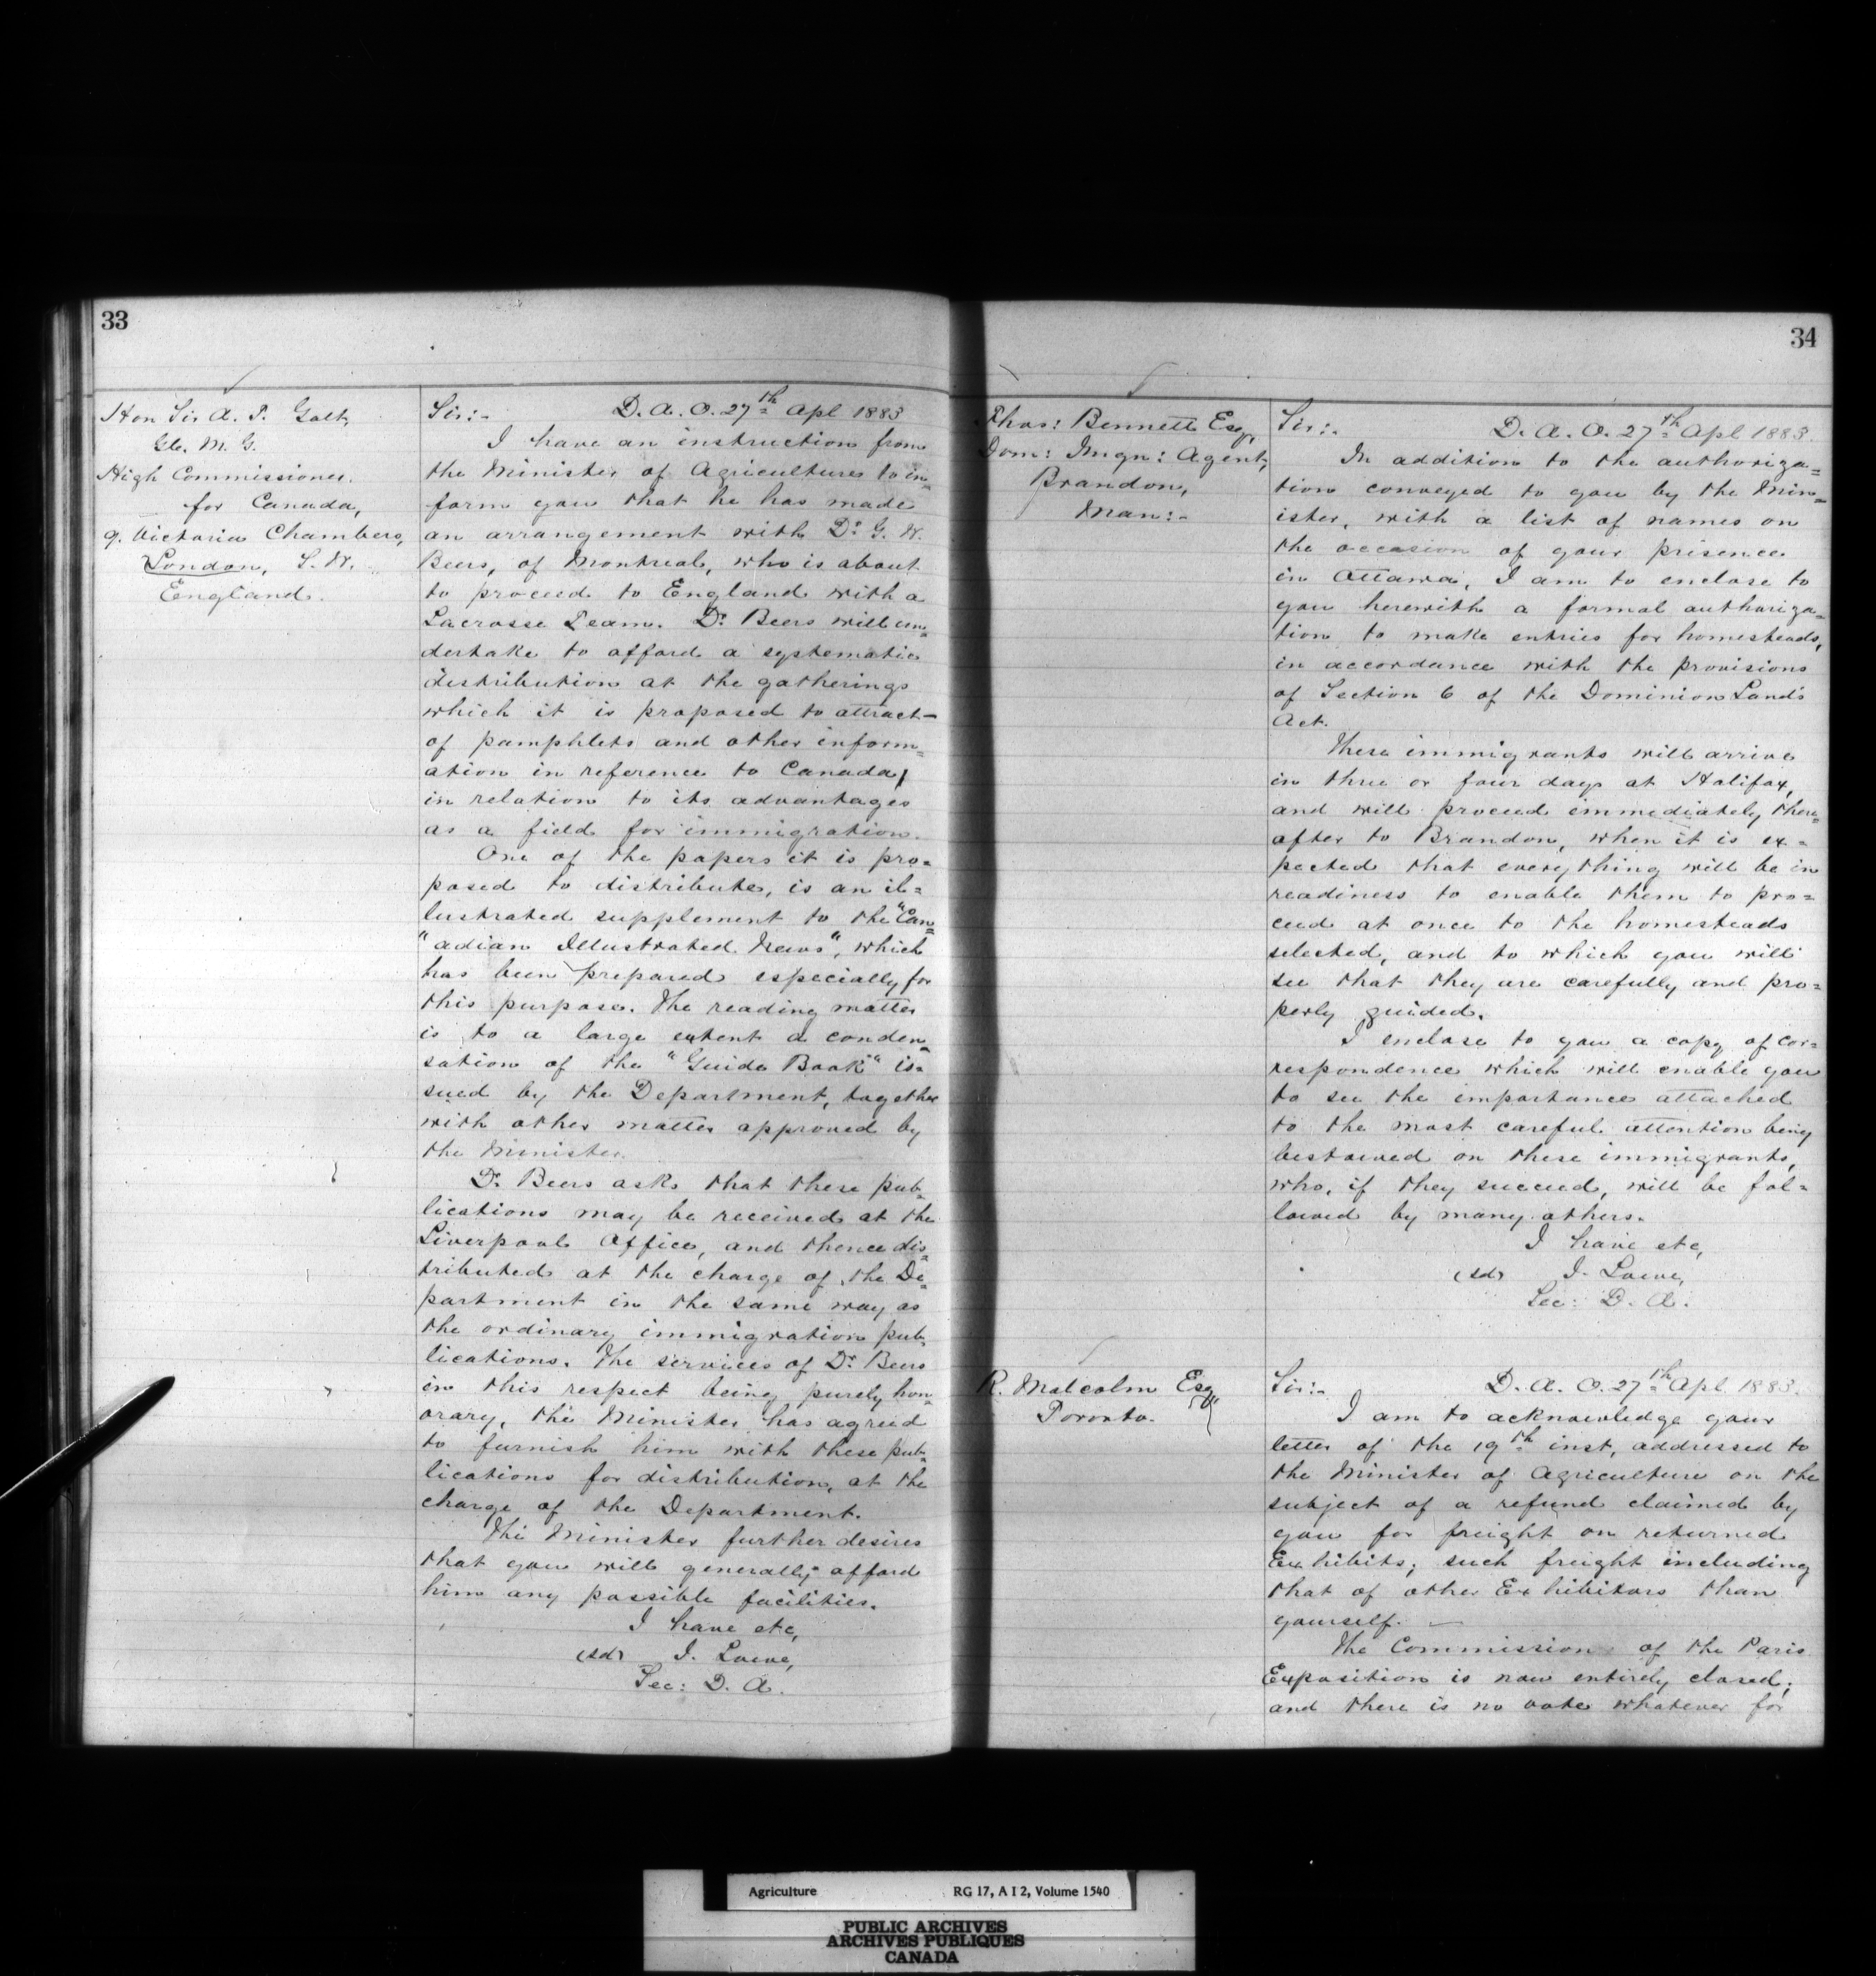 33
Hon Sir A. T. Galt,
G.C. M. G.
High Commissioner
for Canada,
9. Victoria Chambers,
London, S. W.
England.
Sir:- D. A. O. 27th Apl 1883
I have an instruction from
the Minister of Agriculture to in=
form you that he has made
an arrangement with Dr. G. W.
Beers, of Montreal, who is about
to proceed to England with a
Lacrosse Team. Dr Beers will un=
dertake to afford a systematic
distribution at the gatherings
which it is proposed to attract—
of pamphlets and other inform=
ation in reference to Canada,
in relation to its advantages
as a field for immigration.
One of the papers it is pro=
posed to distribute, is an il=
lustrated supplement to the "Can=
"adian Illustrated News", which
has been prepared especially for
this purpose. The reading matter
is to a large extent a conden=
sation of the "Guide Book" is=
sued by the Department, together
with other matter approved by
the Minister.
Dr Beers asks that these pub=
lications may be received at the
Liverpool Office, and thence dis=
tributed at the charge of the De=
partment in the same way as
the ordinary immigration pub=
lications. The services of Dr Beers
in this respect being purely hon=
orary, the Minister has agreed
to furnish him with these pub=
lications for distribution, at the
charge of the Department.
The Minister further desires
that you will generally afford
him any possible facilities.
I have etc,
(sd) J. Lowe,
Sec: D. A.
34
Thos: Bennett Esq,
Dom: Imgn: Agent,
Brandon,
Man:-
Sir:- D. A. O. 27th Apl 1883.
In addition to the authoriza=
tion conveyed to you by the Min=
ister, with a list of names on
the occasion of your prisence
in Ottawa, I am to enclose to
you herewith a formal authoriza=
tion to make entries for homesteads,
in accordance with the provisions
of Section 6 of the Dominion Land's
Act.
These immigrants will arrive
in three or four days at Halifax,
and will proceed immediately there=
after to Brandon, when it is ex=
pected that everything will be in
readiness to enable them to pro=
ceed at once to the homesteads
selected, and to which you will
see that they are carefully and pro=
perly guided.
I enclose to you a copy of cor=
respondence which will enable you
to see the importance attached
to the most careful attention being
bestowed on these immigrants,
who, if they succeed, will be fol=
lowed by many others.
I have etc,
(sd) J. Lowe,
Sec: D. A.
R. Malcolm Esq
Toronto.
Sir:- D. A. O. 27th Apl 1883.
I am to acknowledge your
letter of the 19th inst, addressed to
the Minister of Agriculture on the
subject of a refund claimed by
you for freight on returned
Exhibits; such freight including
that of other Exhibitors than
yourself. —
The Commission of the Paris
Exposition is now entirely closed;
and there is no vote whatever for
Agriculture RG 17, A I 2, Volume 1540
PUBLIC ARCHIVES
ARCHIVES PUBLIQUES
CANADA